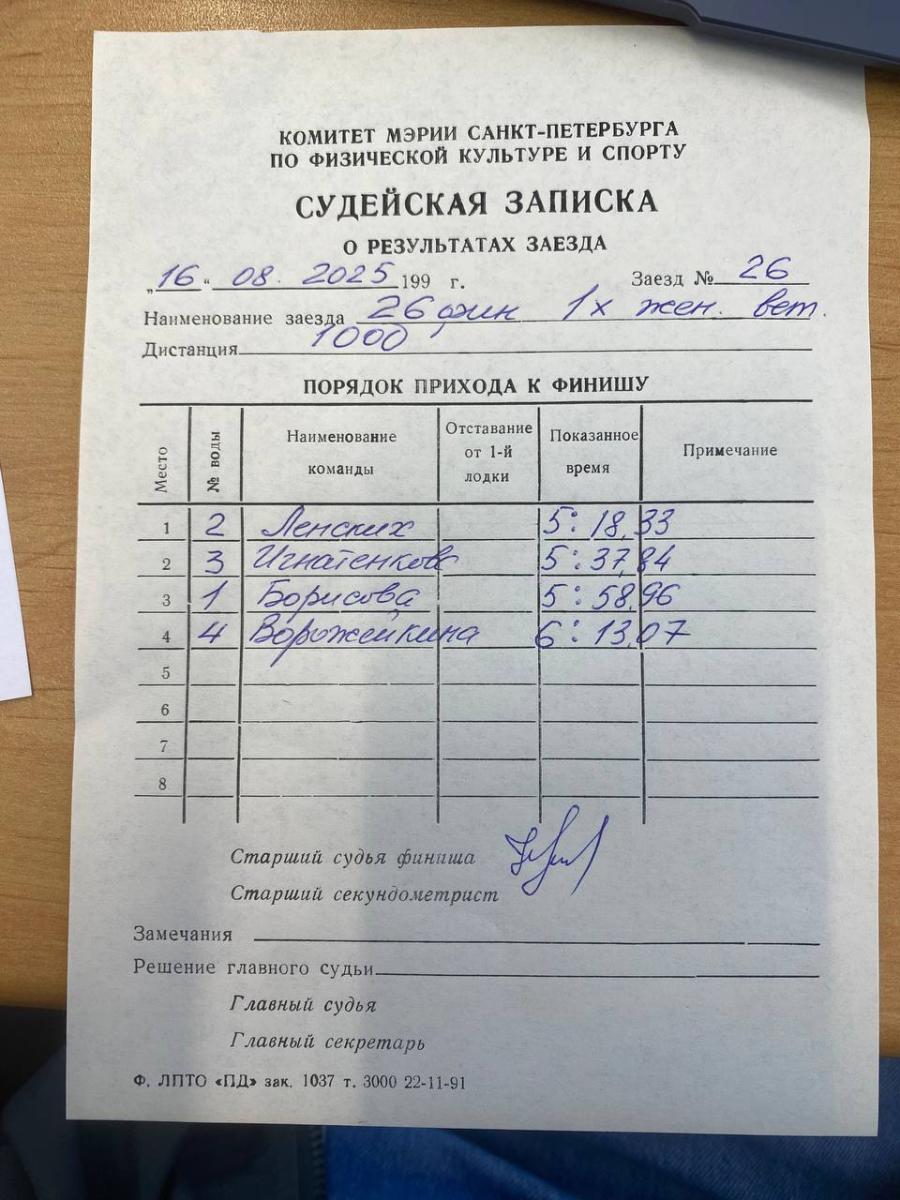 КОМИТЕТ МЭРИИ САНКТ-ПЕТЕРБУРГА
ПО ФИЗИЧЕСКОЙ КУЛЬТУРЕ И СПОРТУ
СУДЕЙСКАЯ ЗАПИСКА
О РЕЗУЛЬТАТАХ ЗАЕЗДА
„16“ 08. 2025 199 г. Заезд № 26
Наименование заезда 26 фин 1х жен. вет.
Дистанция 1000
ПОРЯДОК ПРИХОДА К ФИНИШУ
Место № воды Наименование команды Отставание от 1-й лодки Показанное время Примечание
1 2 Ленских 5: 18,33
2 3 Игнатенкова 5: 37,84
3 1 Борисова 5: 58,96
4 4 Ворожейкина 6: 13,07
5
6
7
8
Старший судья финиша
Старший секундометрист
Замечания
Решение главного судьи
Главный судья
Главный секретарь
Ф. ЛПТО «ПД» зак. 1037 т. 3000 22-11-91